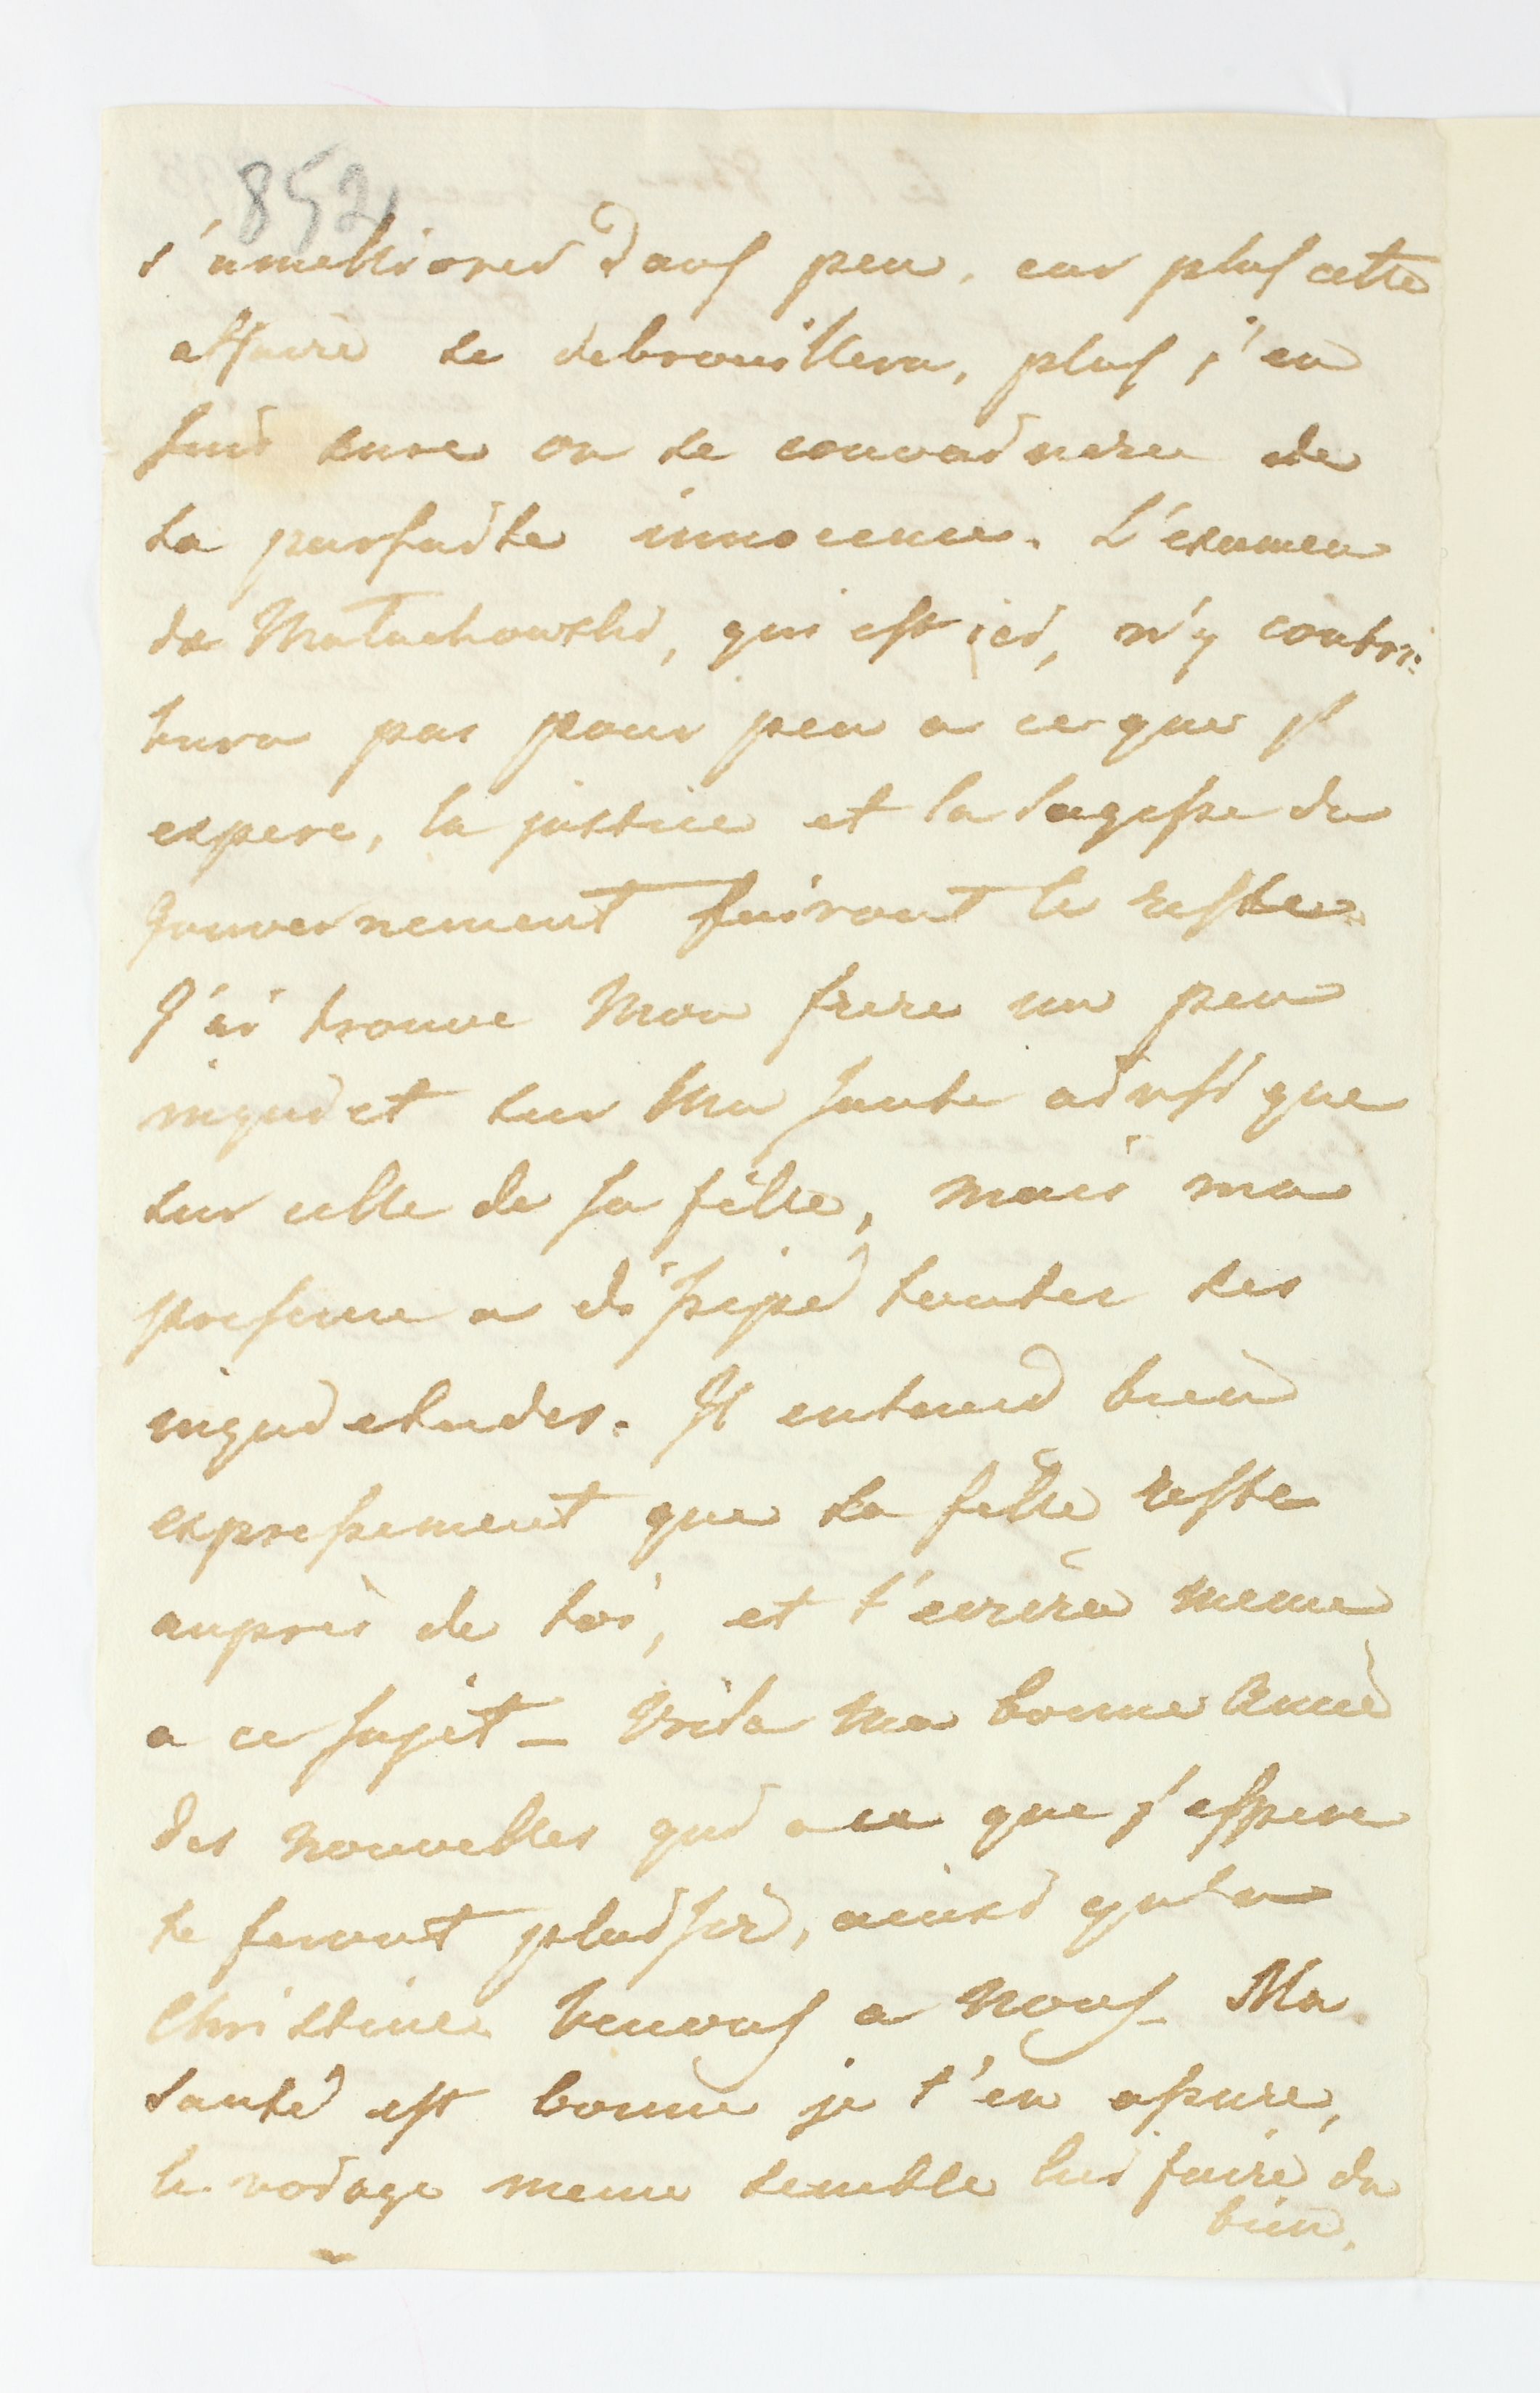 852
s'ameliorer dans peu, car plus cette
affaire se debrouillera, plus j'en
suis sure on se convaincra de
sa parfaite innocence. L'examen
de Małachowski, qui est ici, n'y contri-
bura pas pour peu a ce que j'
espere, la justice et la sagesse du
gouvernement fairont le reste.
J'ai trouve Mon frere un peu
inquiet sur Ma sante ainsi que
sur celle de sa fille, mais ma
presence a dissipé toutes ses
inquietudes. Il entend bien
expressement que sa fille reste
auprès de toi, et t'ecrira meme
a ce sujet – Voila Ma bonne Amie
des nouvelles qui a ce que j'espere
te feront plaisir, ainsi qu'a
Christine. Venons a Nous – Ma
santé est bonne je t'en assure,
le voiage meme semble lui faire du
bien.